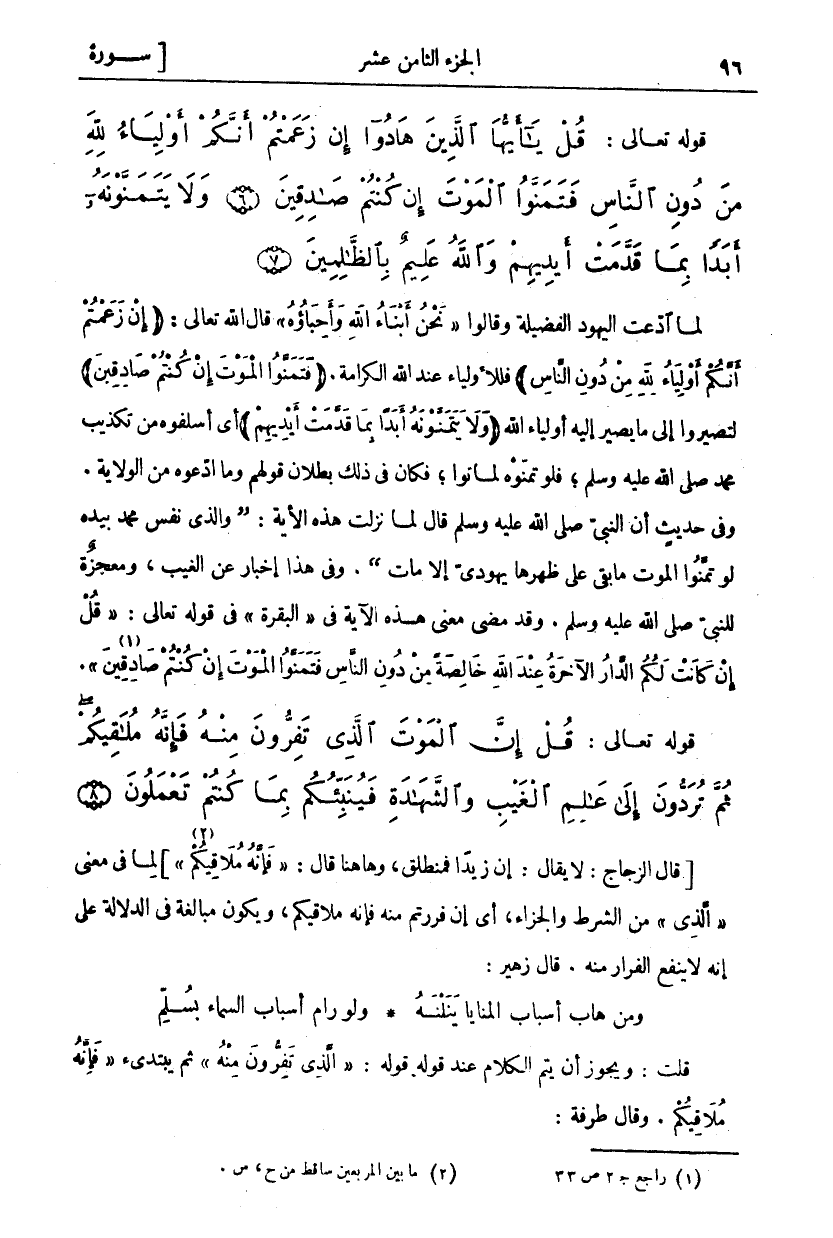 ٩٦ الجزء الثامن عشر [ سـورة
قوله تعـالى : قُلْ يَـٰٓأَيُّهَا ٱلَّذِينَ هَادُوٓا۟ إِن زَعَمْتُمْ أَنَّكُمْ أَوْلِيَآءُ لِلَّهِ
مِن دُونِ ٱلنَّاسِ فَتَمَنَّوُا۟ ٱلْمَوْتَ إِن كُنتُمْ صَـٰدِقِينَ ﴿٦﴾ وَلَا يَتَمَنَّوْنَهُۥٓ
أَبَدًۢا بِمَا قَدَّمَتْ أَيْدِيهِمْ وَٱللَّهُ عَلِيمٌۢ بِٱلظَّـٰلِمِينَ ﴿٧﴾
لمـا ٱدّعت اليهود الفضيلة وقالوا « نَحْنُ أَبْنَاءُ اللهِ وَأَحِبَّاؤُهُ» قال الله تعالى : ﴿ إِنْ زَعَمْتُمْ
أَنَّكُمْ أَوْلِيَاءُ لِلهِ مِنْ دُونِ النَّاسِ ﴾ فللأولياء عند الله الكرامة. ﴿ فَتَمَنَّوُا الْمَوْتَ إِنْ كُنْتُمْ صَادِقِينَ ﴾
لتصيروا إلى ما يصير إليه أولياء الله ﴿ وَلَا يَتَمَنَّوْنَهُ أَبَدًا بِمَا قَدَّمَتْ أَيْدِيهِمْ ﴾ أى أسلفوه من تكذيب
محمد صلى الله عليه وسلم ؛ فلو تمنّوْه لمـاتوا ؛ فكان فى ذلك بطلان قولهم وما ادّعوه من الولاية .
وفى حديثٍ أن النبىّ صلى الله عليه وسلم قال لمـا نزلت هذه الأية : ” والذى نفس محمد بيده
لو تمنَّوا الموت مابقى على ظهرها يهودىّ إلا مات “ . وفى هذا إخبار عن الغيب ، ومعجزةٌ
للنبىّ صلى الله عليه وسلم . وقد مضى معنى هـذه الآية فى « البقرة » فى قوله تعالى : « قُلْ
إِنْ كَانَتْ لَكُمُ الدَّارُ الآخِرَةُ عِنْدَ اللهِ خَالِصَةً مِنْ دُونِ النَّاسِ فَتَمَنَّوُا الْمَوْتَ إِنْ كُنْتُمْ صَادِقِينَ(١) ».
قوله تعـالى : قُـلْ إِنَّ ٱلْمَوْتَ ٱلَّذِى تَفِرُّونَ مِنْـهُ فَإِنَّهُۥ مُلَـٰقِيكُمْ ۖ
ثُمَّ تُرَدُّونَ إِلَىٰ عَـٰلِمِ ٱلْغَيْبِ وَٱلشَّهَـٰدَةِ فَيُنَبِّئُكُم بِمَا كُنتُمْ تَعْمَلُونَ ﴿٨﴾
[ قال الزجاج : لا يقال : إن زيدًا فمنطلق، وهاهنا قال : « فَإِنَّهُ مُلَاقِيكُمْ(٢) » ] لِمـا فى معنى
« الَّذِى » من الشرط والجزاء، أى إن فررتم منه فإنه ملاقيكم ، ويكون مبالغة فى الدلالة على
إنه لا ينفع الفرار منه . قال زهير :
ومن هاب أسباب المنايا يَنَلْنَـهُ * ولو رام أسباب السماء بسُلَّمِ
قلت : ويجوز أن يتم الكلام عند قوله قوله : « الَّذِى تَفِرُّونَ مِنْهُ » ثم يبتدىء « فَإِنَّهُ
مُلَاقِيكُمْ . وقال طرفة :
(١) راجع جـ ٢ ص ٣٣ (٢) ما بين المربعين ساقط من ح ، س .